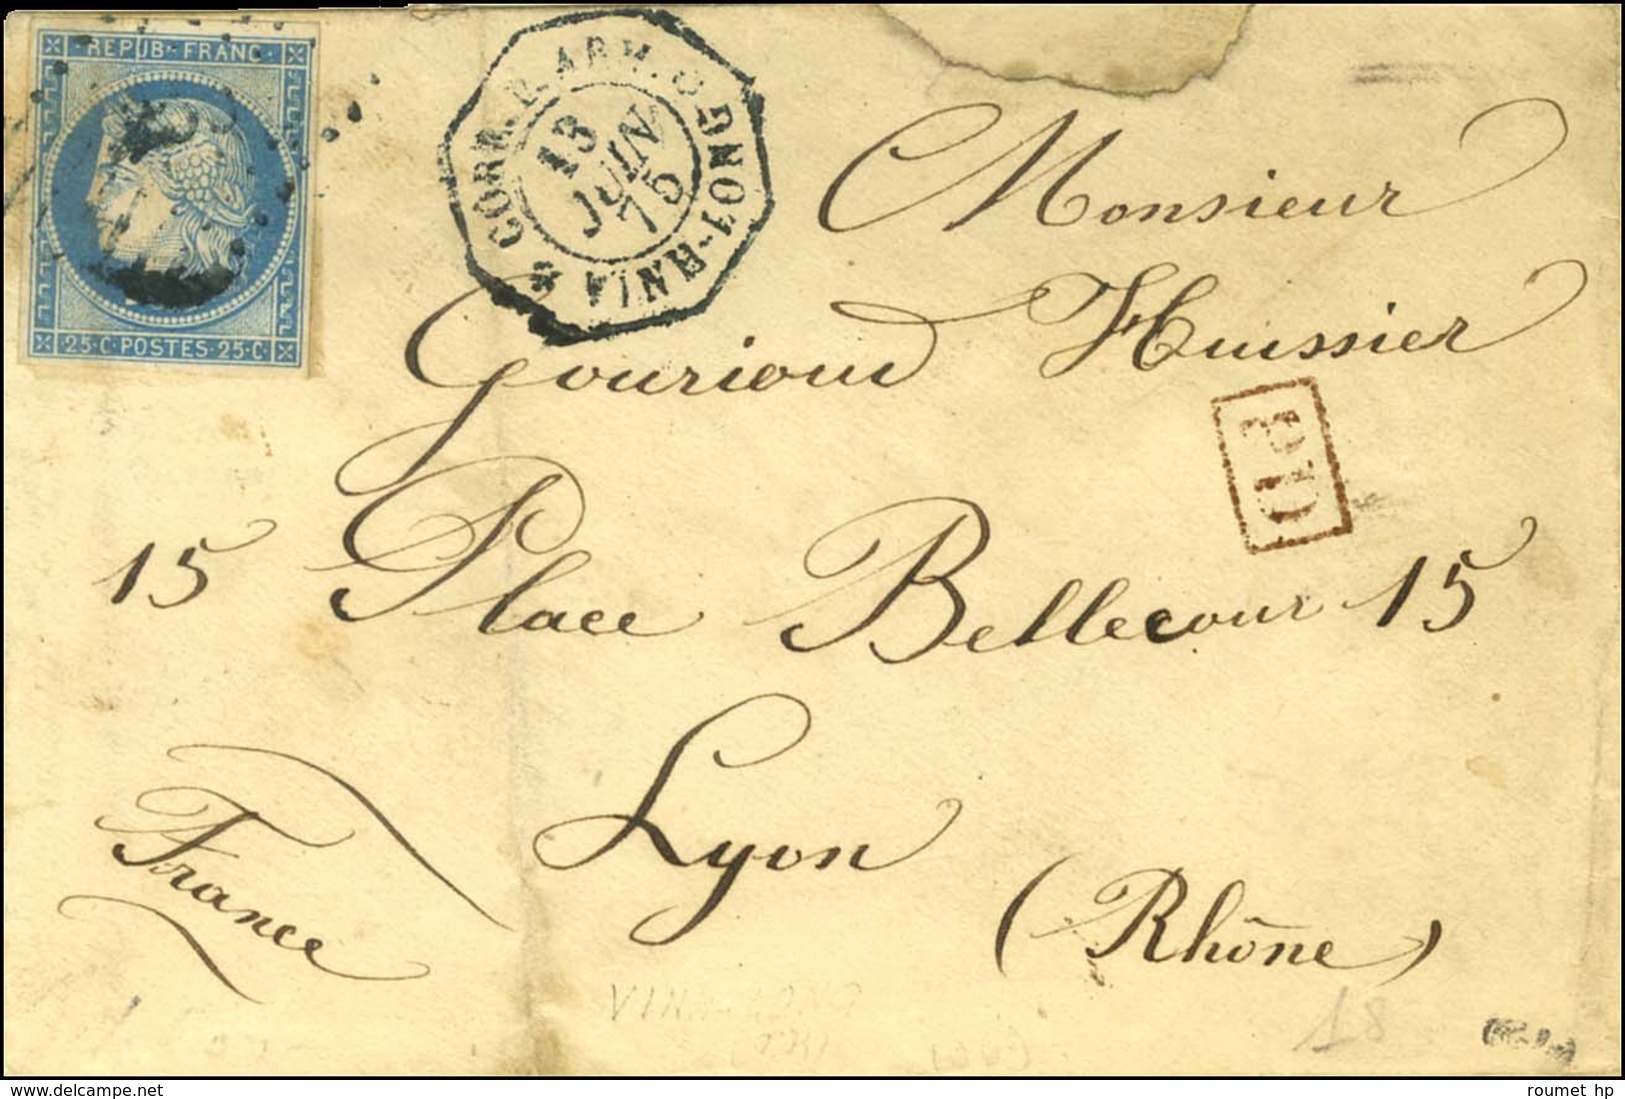 REPUB · FRANC ·
25 · C · POSTES · 25 · C ·
CORR. P. ARM. LONG-VINH-LONG
13
JUIN
75
Monsieur
Gourioud Huissier
PD
15 Place Bellecour 15
Lyon
(Rhône)
France
18
roumet hp